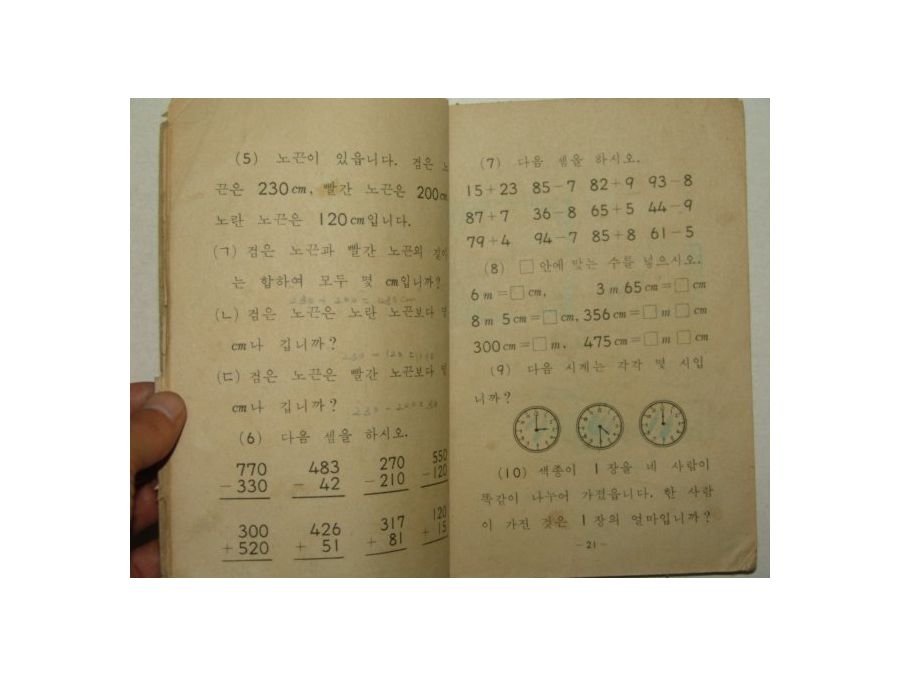 (5) 노끈이 있읍니다. 검은 노
끈은 230cm, 빨간 노끈은 200cm,
노란 노끈은 120cm입니다.
(ㄱ) 검은 노끈과 빨간 노끈의 길이
는 합하여 모두 몇 cm입니까?
(ㄴ) 검은 노끈은 노란 노끈보다 몇
cm나 깁니까?
(ㄷ) 검은 노끈은 빨간 노끈보다 몇
cm나 깁니까?
(6) 다음 셈을 하시오.
770 483 270 550
-330 - 42 -210 -120
300 426 317 120
+520 + 51 + 81 + 15
(7) 다음 셈을 하시오.
15+23 85-7 82+9 93-8
87+7 36-8 65+5 44-9
79+4 94-7 85+8 61-5
(8) □안에 맞는 수를 넣으시오.
6 m=□cm, 3 m 65 cm=□cm
8 m 5cm=□cm, 356 cm=□m □cm
300cm=□m, 475cm=□m □cm
(9) 다음 시계는 각각 몇 시입
니까?
(10) 색종이 1장을 네 사람이
똑같이 나누어 가졌읍니다. 한 사람
이 가진 것은 1장의 얼마입니까?
-21-